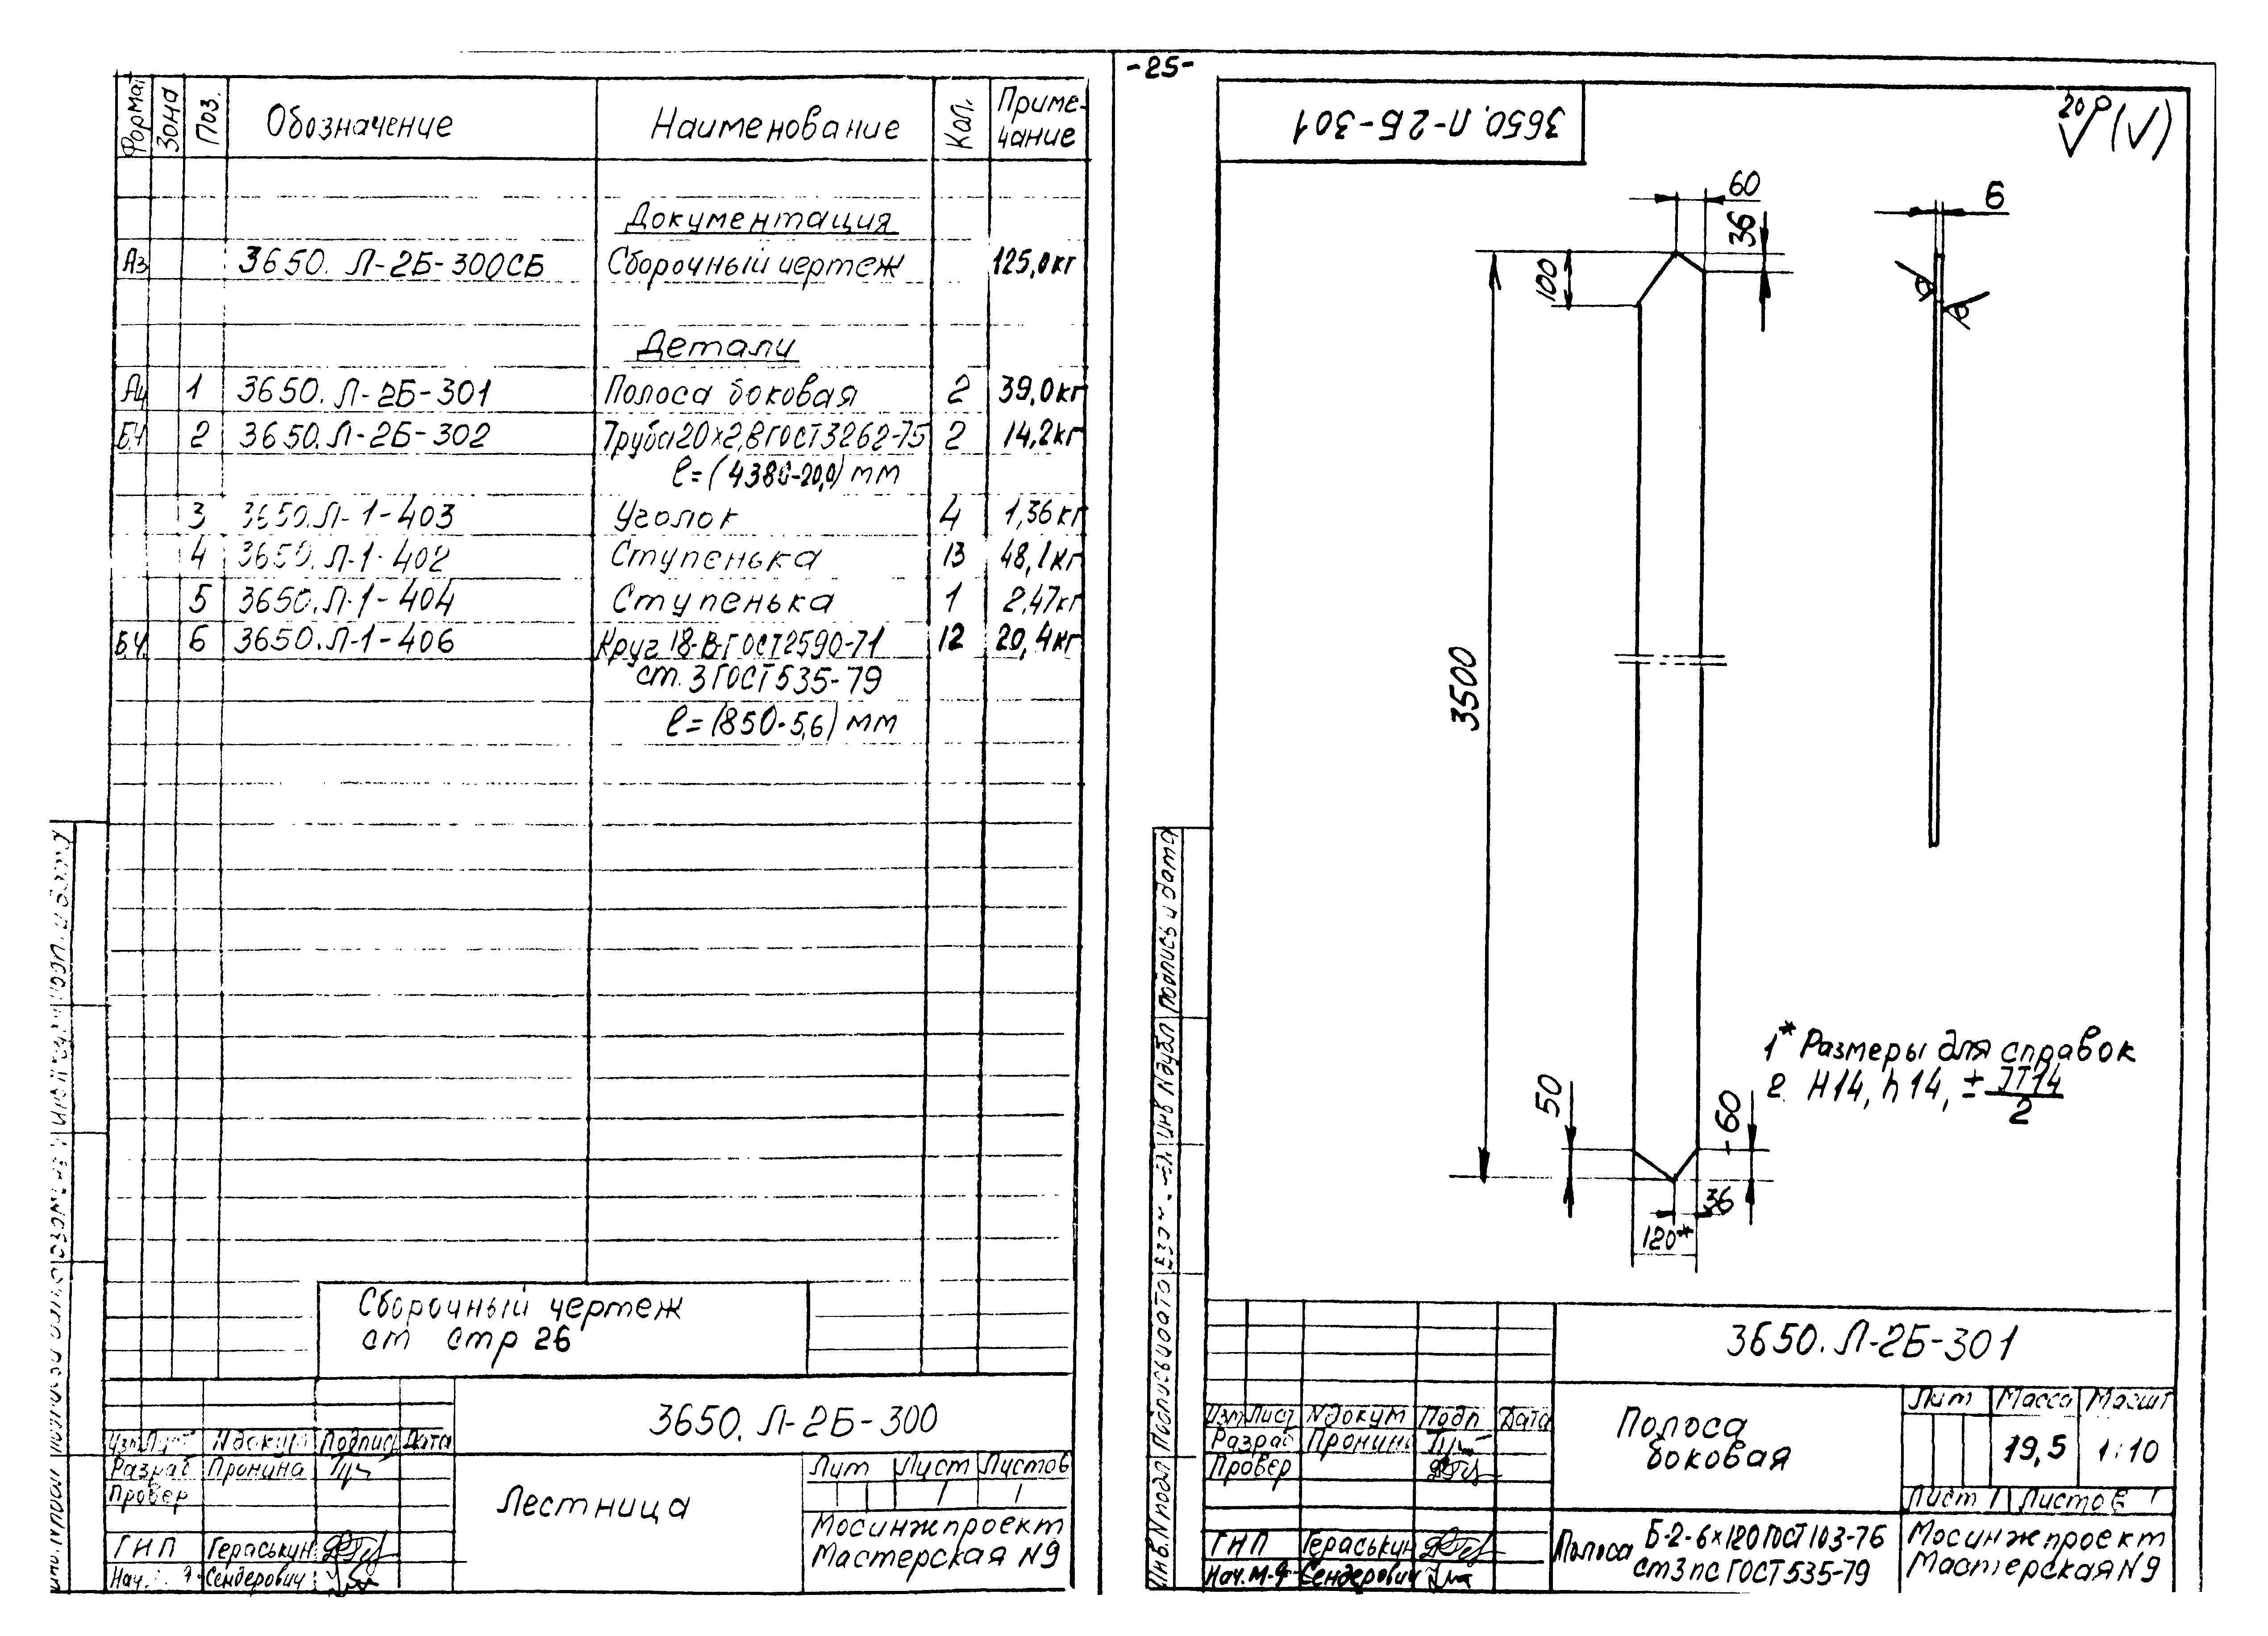 -25-
Форма.
Зона
Поз.
Обозначение
Наименование
Кол.
Приме-
чание
Документация
А3 3650. Л-2Б-300СБ Сборочный чертеж 125,0кг
Детали
А4 1 3650. Л-2Б-301 Полоса боковая 2 39,0кг
Б.Ч 2 3650.Л-2Б-302 Труба20х2,8ГОСТ3262-75 2 14,2кг
ℓ=(4380-20,0) мм
3 3650.Л-1-403 Уголок 4 1,36кг
4 3650.Л-1-402 Ступенька 13 48,1кг
5 3650.Л-1-404 Ступенька 1 2,47кг
Б.Ч. 6 3650.Л-1-406 Круг 18-В-ГОСТ2590-71 12 20,4кг
ст.3ГОСТ535-79
ℓ=(850-5,6) мм
Сборочный чертеж
см стр 26
3650. Л-2Б-300
Изм Лист Nдокум Подпись Дата
Разраб Пронина
Провер
ГНП Гераськин
Нач. Сендерович
Лестница
Лит Лист Листов
1 1
Мосинжпроект
Мастерская N9
3650. Л-2Б-301
20 (√)
60
36
100
6
3500
50
60
36
120*
1* Размеры для справок
2. Н14, h14, ± JT14
2
Подпись и дата
3650. Л-2Б-301
Изм Лист Nдокум Подп Дата
Разраб Пронина
Провер
ГНП Гераськин
Нач.М-9 Сендерович
Полоса
боковая
Лит Масса Масшт
19,5 1:10
Лист 1 Листов 1
Полоса Б-2-6х120ГОСТ103-76
ст3пс ГОСТ535-79
Мосинжпроект
Мастерская N9
Инв.Nподл